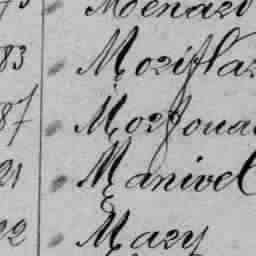 Menard
83 Moriflar
87 Morfoua
21 Manivel
22 Mary